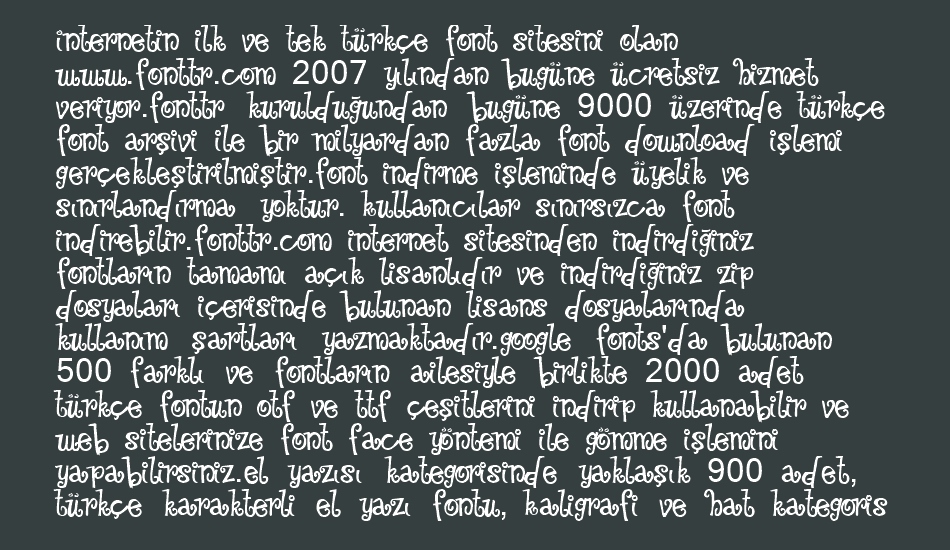 internetin ilk ve tek türkçe font sitesini olan
www.fonttr.com 2007 yılından bugüne ücretsiz hizmet
veriyor.fonttr kurulduğundan bugüne 9000 üzerinde türkçe
font arşivi ile bir milyardan fazla font download işlemi
gerçekleştirilmiştir.font indirme işleminde üyelik ve
sınırlandırma yoktur. kullanıcılar sınırsızca font
indirebilir.fonttr.com internet sitesinden indirdiğiniz
fontların tamamı açık lisanlıdır ve indirdiğiniz zip
dosyaları içerisinde bulunan lisans dosyalarında
kullanım şartları yazmaktadır.google fonts'da bulunan
500 farklı ve fontların ailesiyle birlikte 2000 adet
türkçe fontun otf ve ttf çeşitlerini indirip kullanabilir ve
web sitelerinize font face yöntemi ile gömme işlemini
yapabilirsiniz.el yazısı kategorisinde yaklaşık 900 adet,
türkçe karakterli el yazı fontu, kaligrafi ve hat kategoris